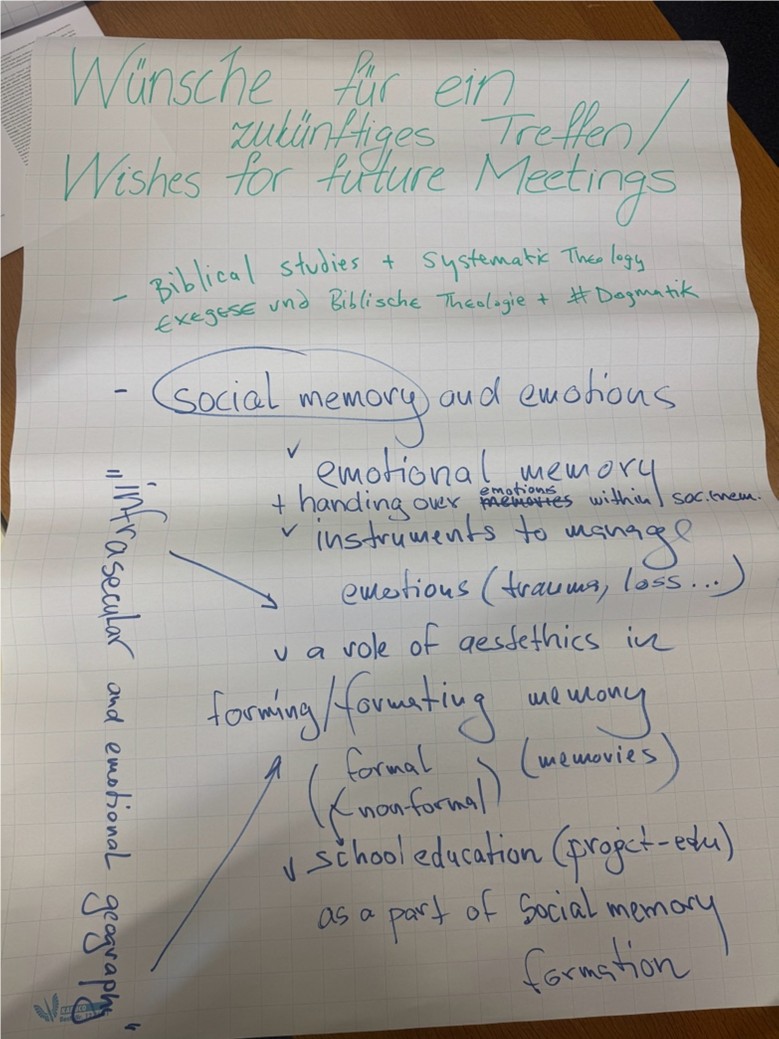 Wünsche für ein
zukünftiges Treffen/
Wishes for future Meetings
- Biblical studies + Systematic Theology
Exegese und Biblische Theologie + # Dogmatik
- social memory and emotions
✓ emotional memory
+ handing over memories emotions within soc.mem.
✓ instruments to manage
emotions (trauma, loss...)
✓ a role of aestethics in
forming/formating memory
(formal (memories)
non-formal)
✓ school education (projct-edu)
as a part of Social memory
formation
"infrasecular and emotional geography"